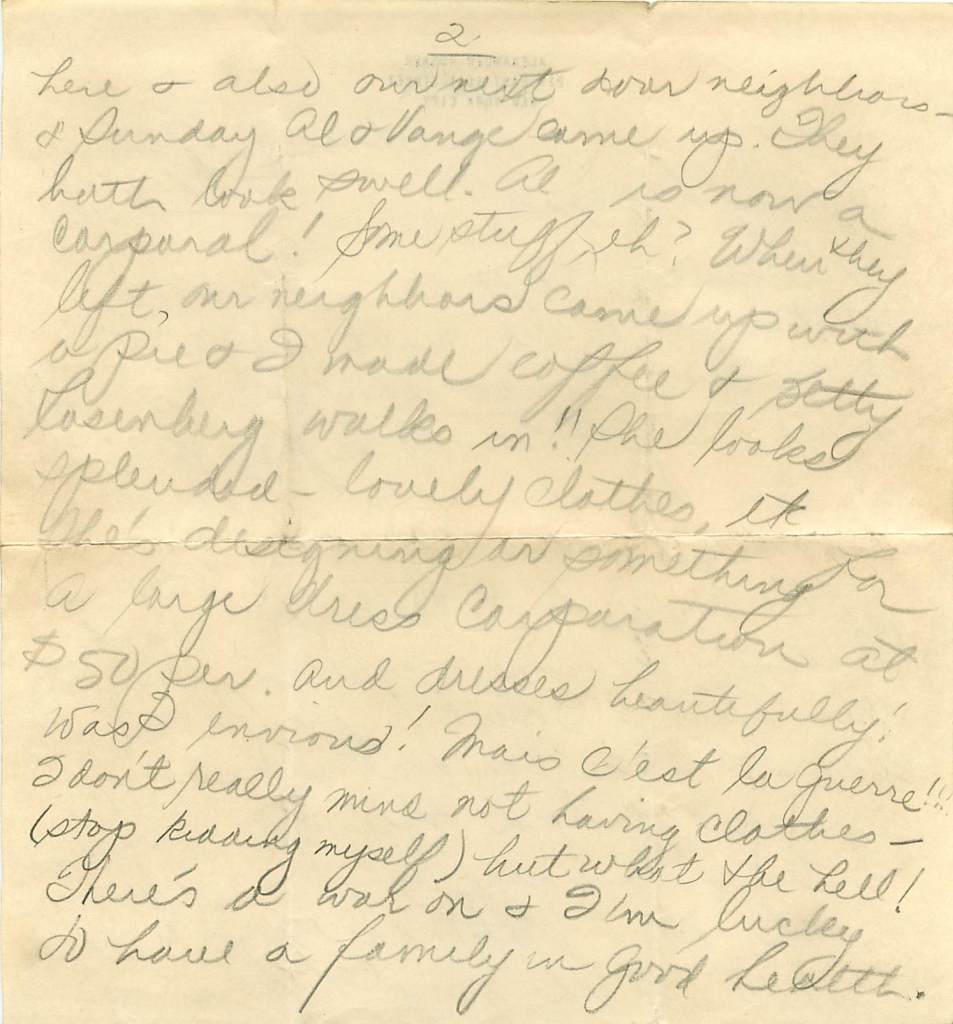 2
here & also our next door neighbors -
& Sunday Al & Vange came up. They
both look swell. Al is now a
Corporal! Some stuff, eh? When they
left, our neighbors came up with
a pie & I made coffee & Betty
Rosenberg walks in!! She looks
splended - lovely clothes, etc
She's designing or something for
a large dress Corporation at
$50 per. And dresses beautifully!
Was I envious! Mais c'est la guerre!!!
I don't really mind not having clothes -
(stop kidding myself) but what the hell!
There's a war on & I'm lucky
to have a family in good health.